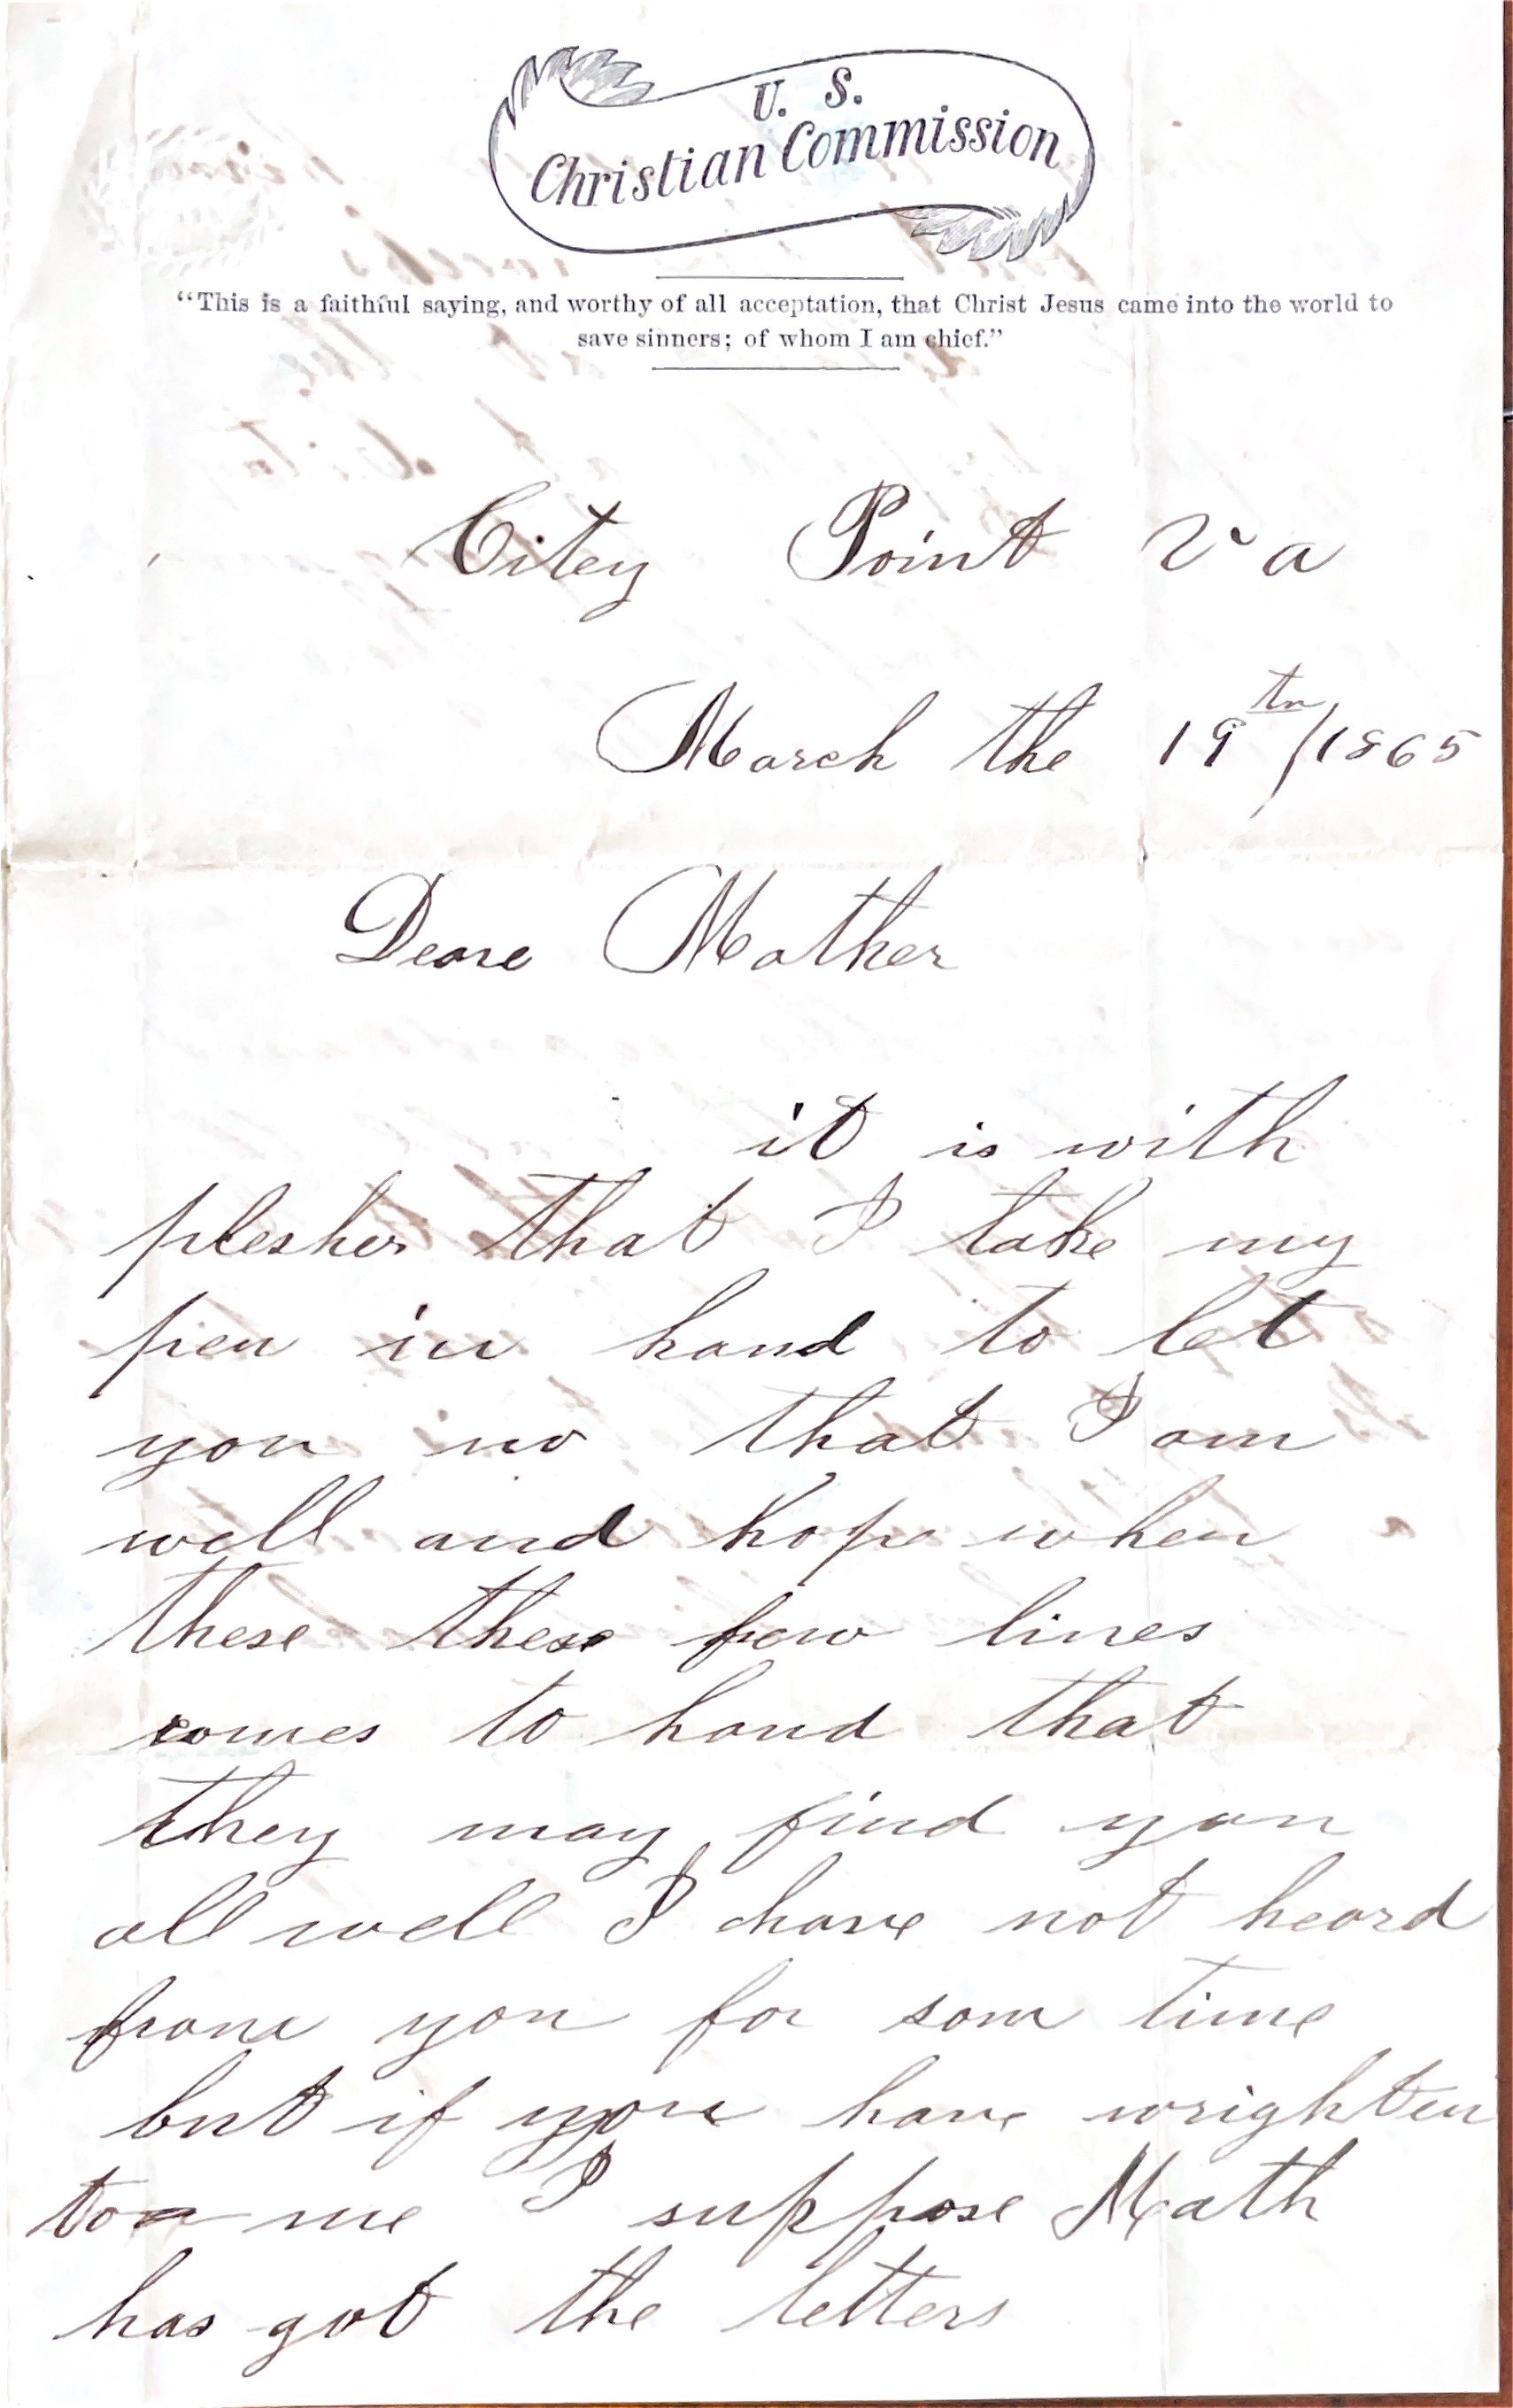 U. S.
Christian Commission
“This is a faithful saying, and worthy of all acceptation, that Christ Jesus came into the world to
save sinners; of whom I am chief.”
Citey Point Va
March the 19th/1865
Deare Mother
it is with
plesher that I take my
pen in hand to let
you no that I am
well and hope when
these these few lines
comes to hand that
they may find you
all well I have not heard
from you for som time
but if you have wrighten
to me I suppose Math
has got the letters